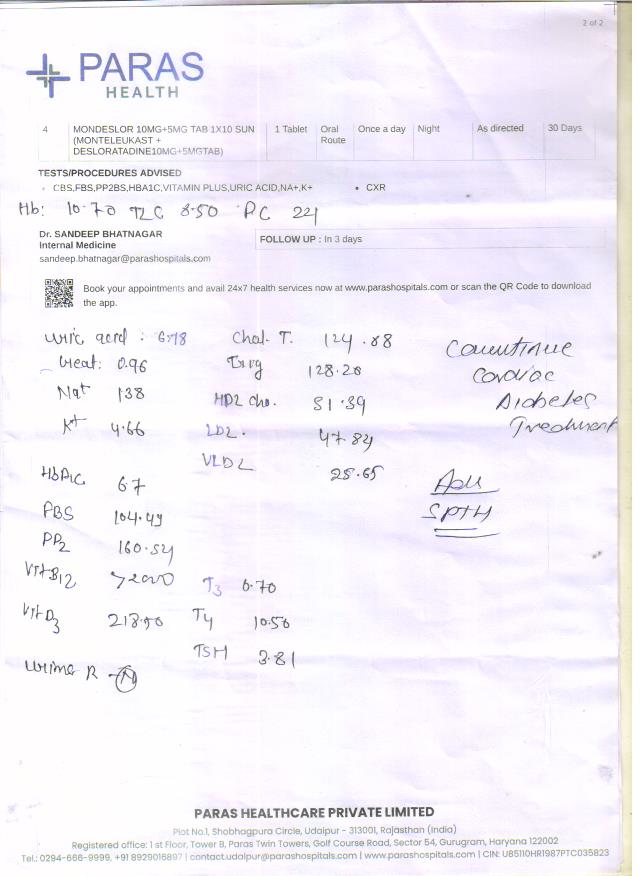 2 of 2
PARAS
HEALTH
4 MONDESLOR 10MG+5MG TAB 1X10 SUN 1 Tablet Oral Once a day Night As directed 30 Days
(MONTELEUKAST + Route
DESLORATADINE10MG+5MGTAB)
TESTS/PROCEDURES ADVISED
• CBS,FBS,PP2BS,HBA1C,VITAMIN PLUS,URIC ACID,NA+,K+ • CXR
Hb: 10.70 TLC 8.50 PC 221
Dr. SANDEEP BHATNAGAR
Internal Medicine FOLLOW UP : In 3 days
sandeep.bhatnagar@parashospitals.com
Book your appointments and avail 24x7 health services now at www.parashospitals.com or scan the QR Code to download
the app.
Uric acid : 6.78 Chol. T. 124.88
Creat: 0.96 Trig 128.26
Na+ 138 HDL Cho. 51.39
K+ 4.66 LDL. 47.84
VLDL 25.65
Continue
Cardiac
Diabetes
Treatment
HbA1C 6.7
FBS 104.49
PP2 160.54
Adv
SPTH
Vit B12 >2000 T3 0.70
Vit D3 218.50 T4 10.50
TSH 3.81
Urine R - N
PARAS HEALTHCARE PRIVATE LIMITED
Plot No.1, Shobhagpura Circle, Udaipur - 313001, Rajasthan (India)
Registered office: 1 st Floor, Tower B, Paras Twin Towers, Golf Course Road, Sector 54, Gurugram, Haryana 122002
Tel.: 0294-666-9999, +91 8929016897 | contact.udaipur@parashospitals.com | www.parashospitals.com | CIN: U85110HR1987PTC035823